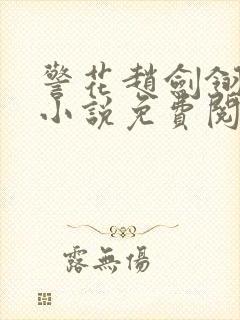 警花趙劍釵
小說免費閱
露無傷